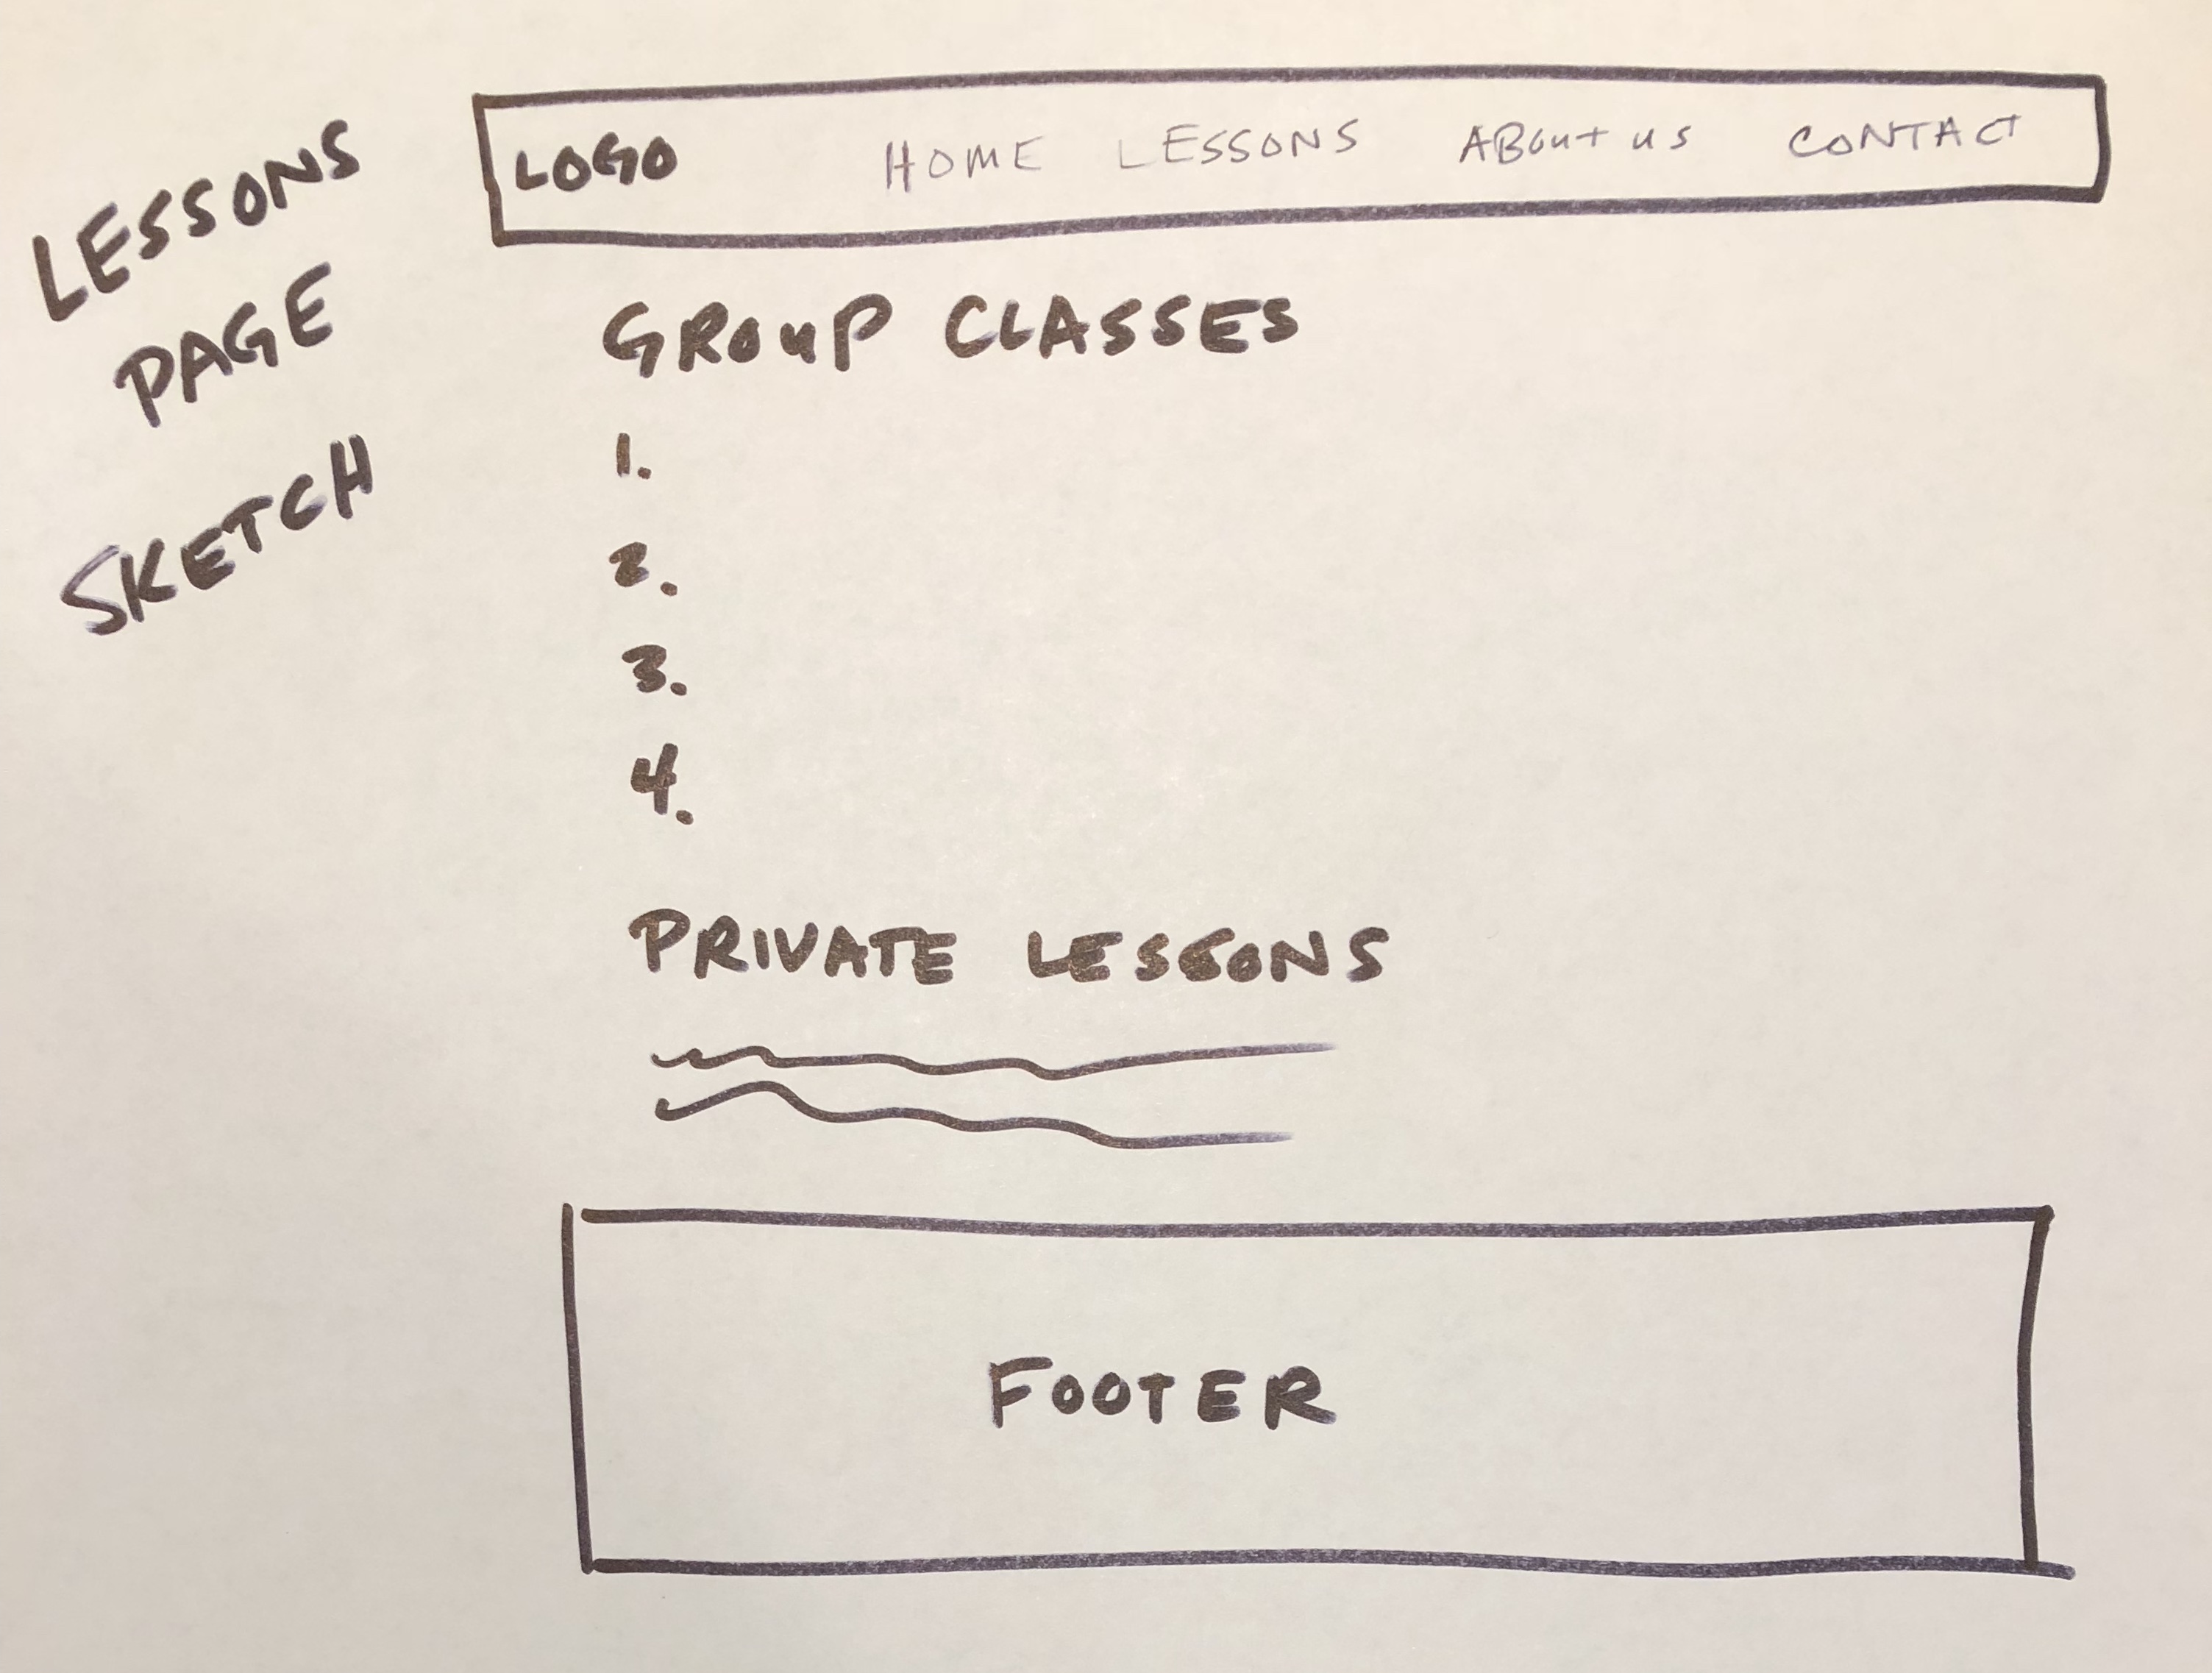 LESSONS
PAGE
SKETCH
LOGO HOME LESSONS ABOut US CONTACT
GROuP CLASSES
1.
2.
3.
4.
PRIVATE LESSONS
FOOTER